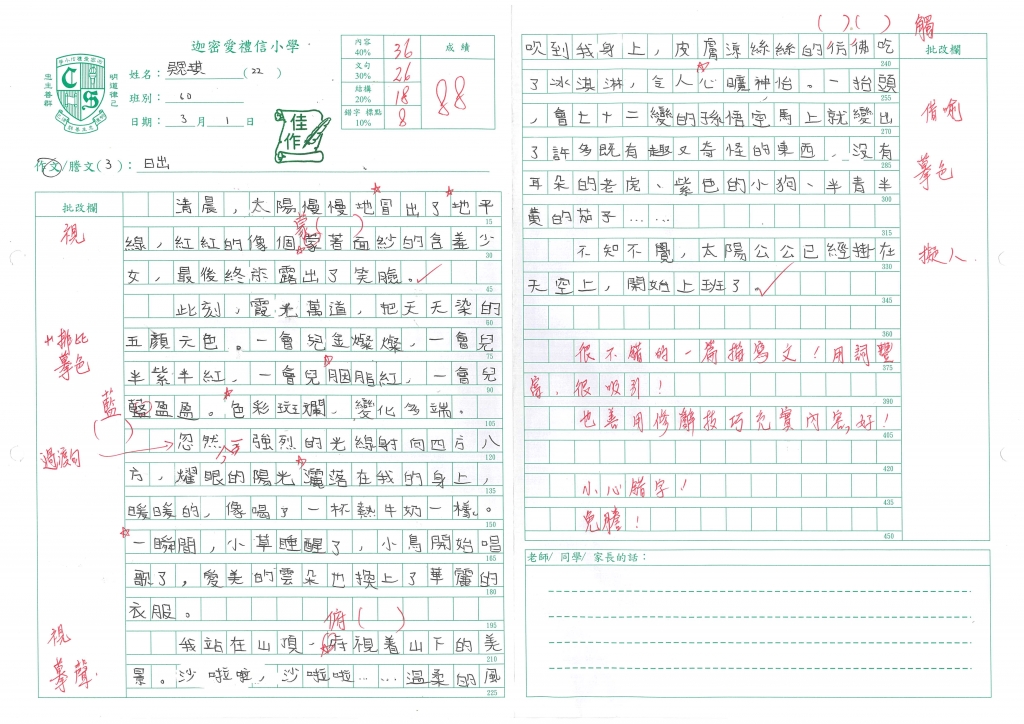 迦密愛禮信小學
姓名：(22)
班別：6D
日期：3月1日
內容 40% 36
文句 30% 26
結構 20% 18
錯字 標點 10% 8
成績
88
佳作
作文/謄文(3)：日出
批改欄
清晨，太陽慢慢地冒出了地平
15
線，紅紅的像個蒙著面紗的含羞少
30
視
女，最後終於露出了笑臉。
45
此刻，霞光萬道，把天天染的
60
排比
摹色
五顏六色。一會兒金燦燦，一會兒
75
半紫半紅，一會兒胭脂紅，一會兒
90
藍( )
藍盈盈。色彩斑斕，變化多端。
105
過渡句
忽然一強烈的光線射向四方八
方，耀眼的陽光灑落在我的身上，
135
暖暖的，像喝了一杯熱牛奶一樣。
150
一瞬間，小草睡醒了，小鳥開始唱
165
歌了，愛美的雲朵也換上了華麗的
180
衣服。
195
俯( )
視
摹聲
我站在山頂，府視着山下的美
210
景。沙啦啦，沙啦啦……溫柔的風
225
( )( )
觸
批改欄
吹到我身上，皮膚涼絲絲的彷彿吃
240
了冰淇淋，令人心曠神怡。一抬頭
255
借喻
，會七十二變的孫悟空馬上就變出
270
了許多既有趣又奇怪的東西，沒有
285
摹色
耳朵的老虎、紫色的小狗、半青半
300
黄的茄子……
315
擬人
不知不覺，太陽公公已經掛在
330
天空上，開始上班了。
345
360
很不錯的一篇描寫文！用詞豐
375
富，很吸引！
390
也善用修辭技巧充實內容，好！
405
420
小心錯字！
435
免謄！
450
老師/同學/家長的話：